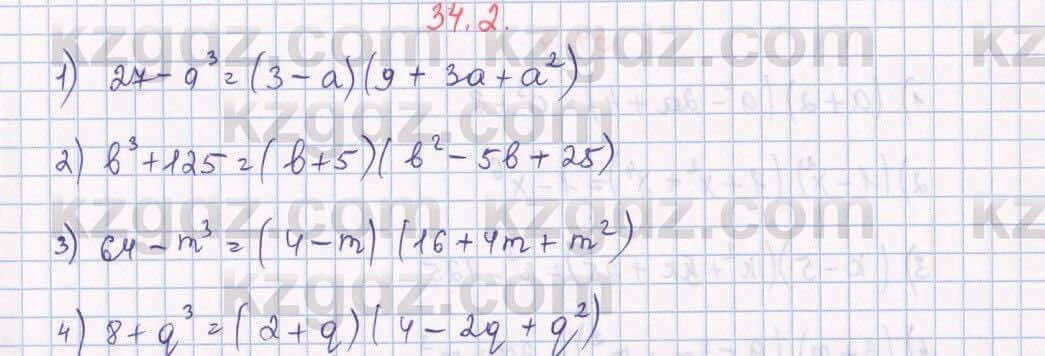 34.2.
1) 27 - a³ = (3 - a)(9 + 3a + a²)
2) b³ + 125 = (b + 5)(b² - 5b + 25)
3) 64 - m³ = (4 - m)(16 + 4m + m²)
4) 8 + q³ = (2 + q)(4 - 2q + q²)
kzgdz.com kzgdz.com kz
kzgdz.com
kzgdz.com kzgdz.com kz
kzgdz.com